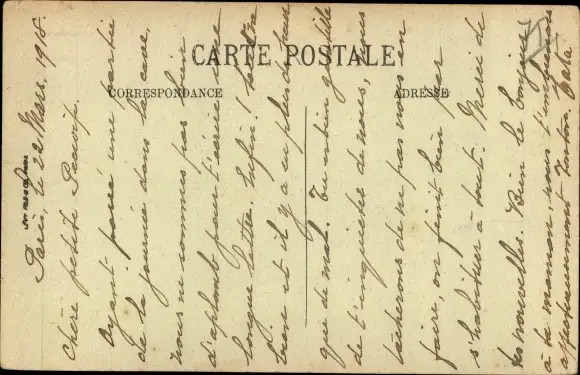 CARTE POSTALE
CORRESPONDANCE
ADRESSE
Paris, le 22 Mars, 1918.
Chère petite
Ayant passé une partie
de la journée dans la cave,
nous ne sommes pas bien
d'aplomb pour t'écrire une
longue lettre. Enfin!
bien et il y a eu plus de peur
que de mal. Tu es bien gentille
de t'inquiéter de nous, nous
tâcherons de ne pas nous en
faire, on finit bien par
s'habituer à tout. Merci de
tes nouvelles. Bien le bonjour
à ta maman, nous t'embrassons
affectueusement Tonton, Tata